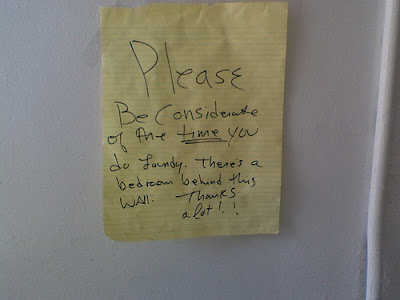 Please
Be Considerate
of the time you
do Laundy. There's a
bedroom behind this
WAll. Thanks
a lot!!